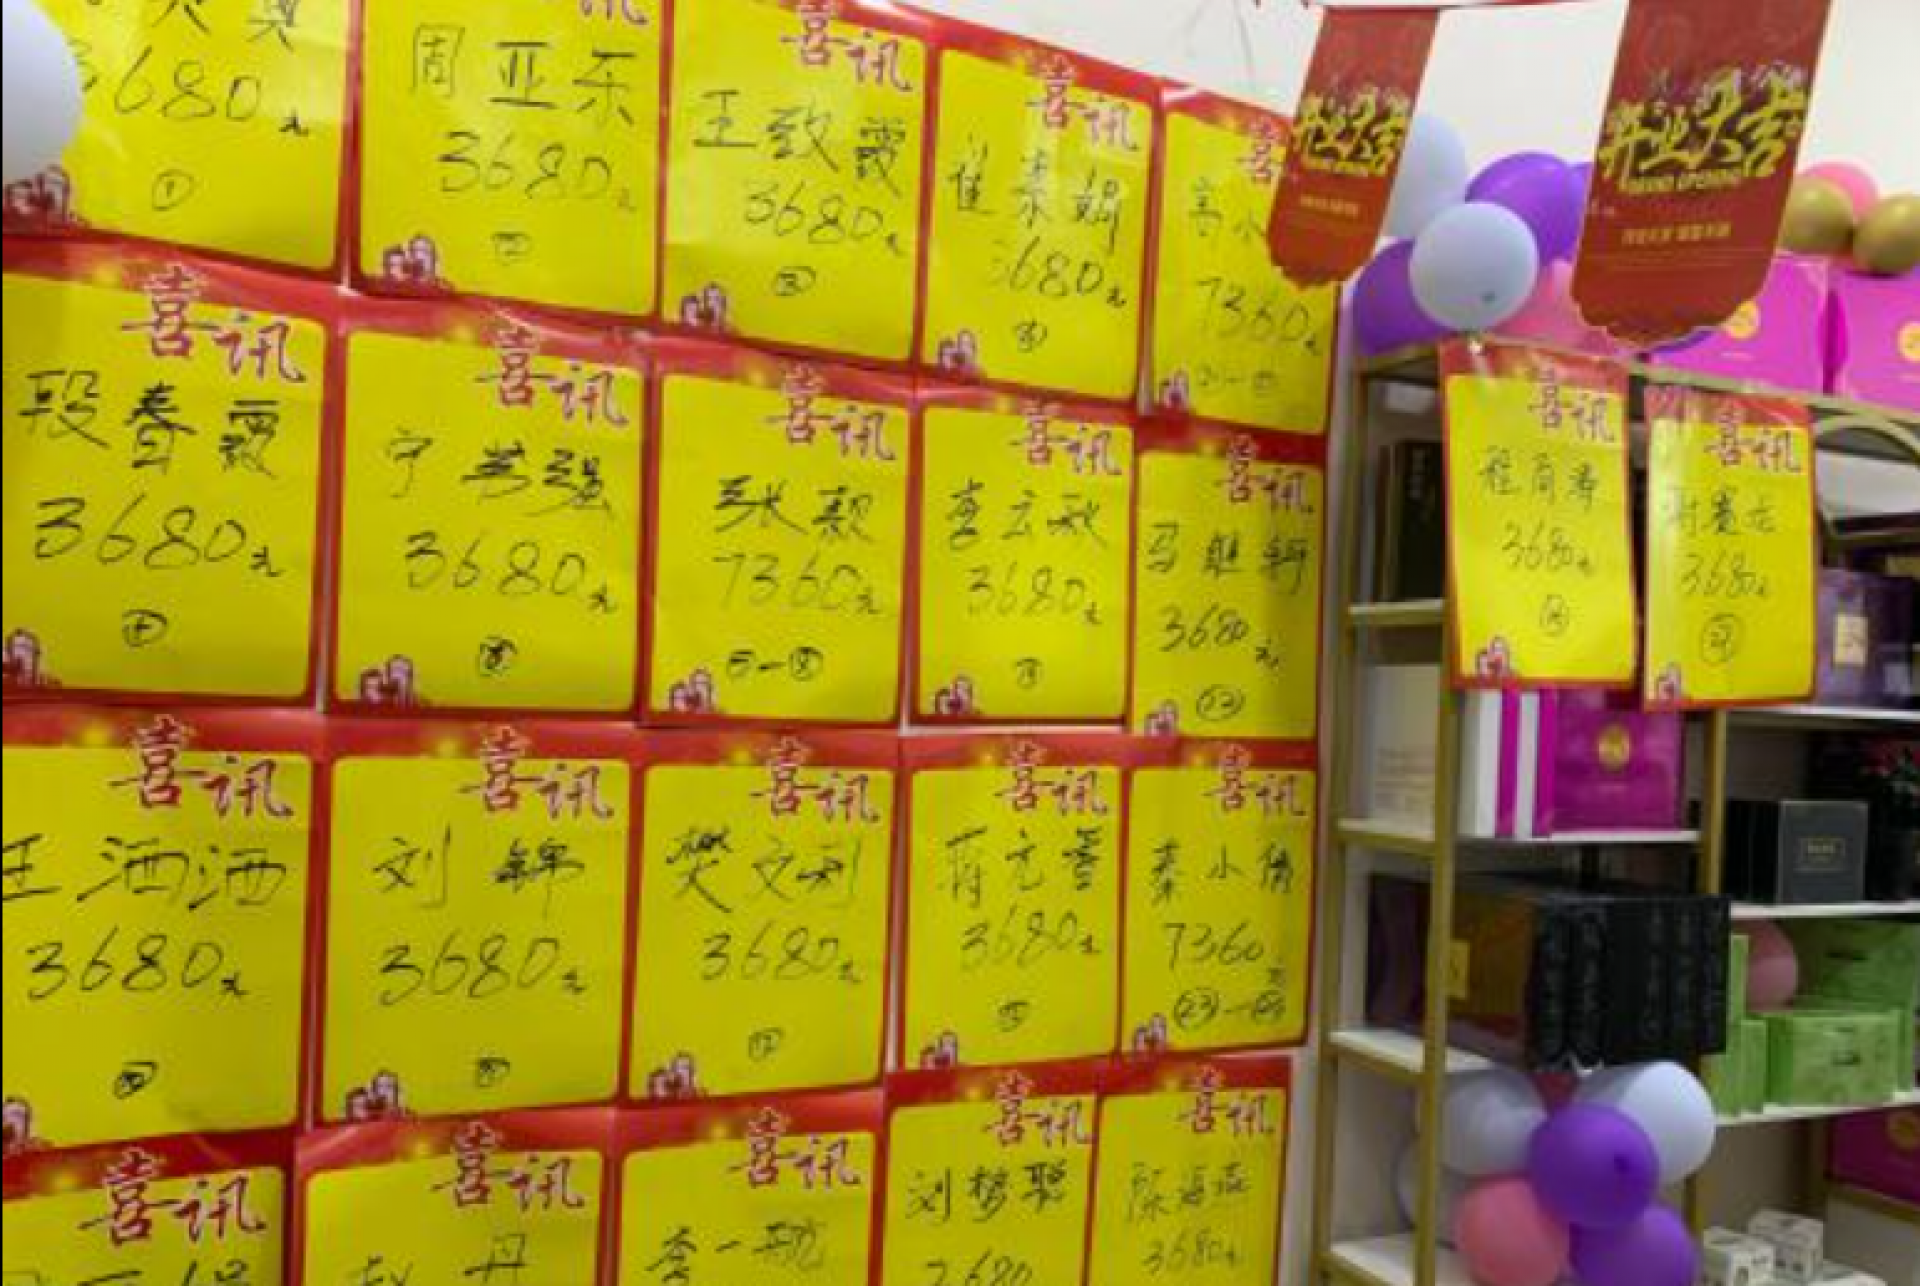 3680元
①
讯
周亚东
3680元
二
喜讯
王致霞
3680元
③
喜讯
崔素娟
3680元
④
喜
高小
7360元
开业大吉
开业大吉
GRAND OPENING
喜讯
段春霞
3680元
喜讯
宁
3680元
⑧
喜讯
张毅
7360元
喜讯
李云秋
3680元
喜讯
马
3680元
㉒
喜讯
程
3680元
喜讯
3680元
喜讯
王洒洒
3680元
喜讯
刘锦
3680元
喜讯
樊文利
3680元
喜讯
蒋
3680元
喜讯
秦小倩
7360元
喜讯
喜讯
丹
喜讯
李一航
喜讯
刘梦聪
3680
喜讯
陈海燕
3680元